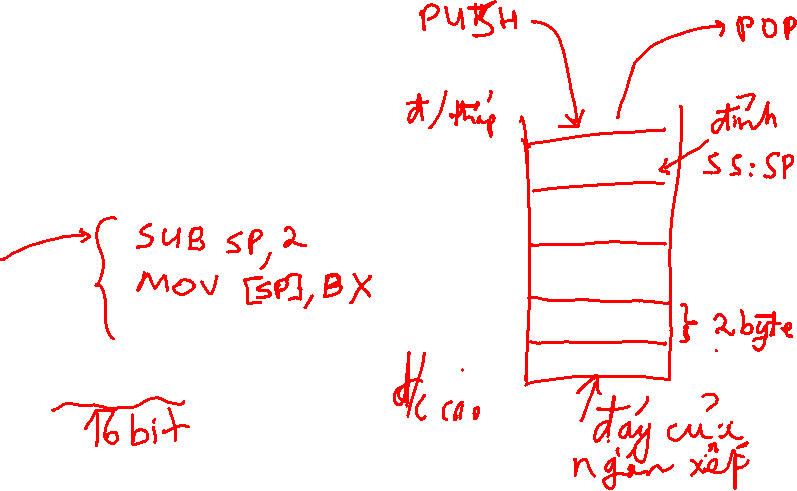 PUSH
POP
đ/c thấp
đỉnh
SS:SP
SUB SP, 2
MOV [SP], BX
2 byte
đ/c cao
16 bit
đáy của
ngăn xếp